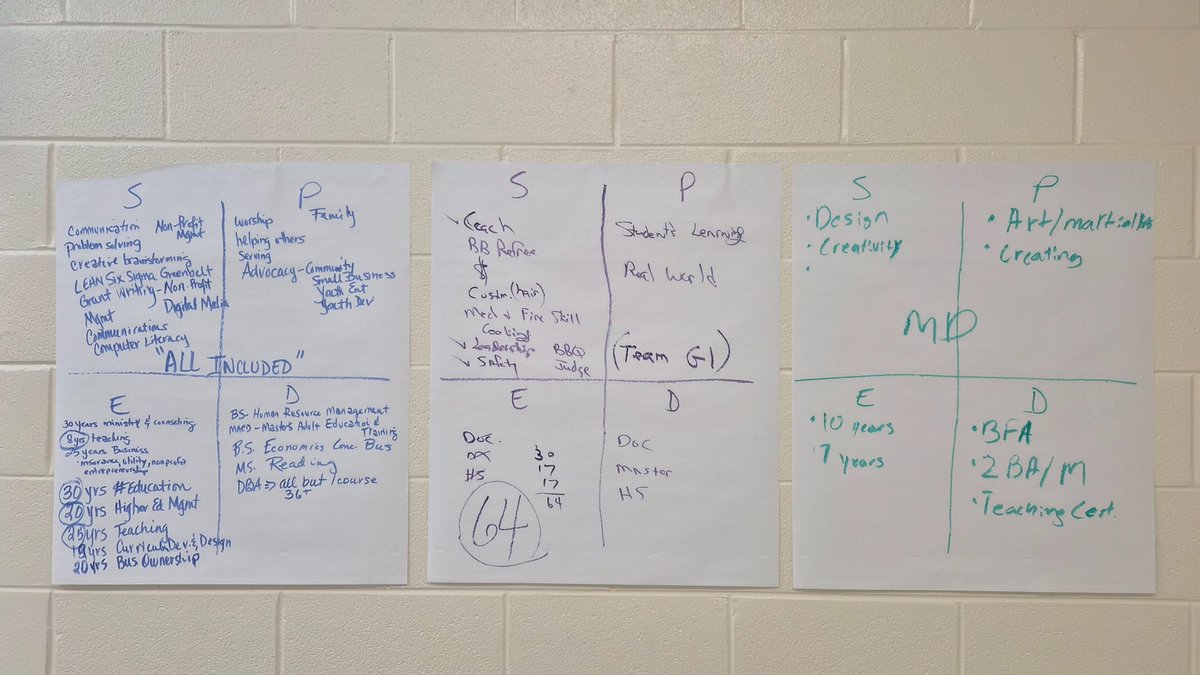 S
Communication Non-Profit Mgmt
problem solving
creative brainstorming
LEAN Six Sigma Greenbelt
Grant Writing - Non-Profit
Mgmt Digital Media
Communications
Computer Literacy
"ALL INCLUDED"
P
worship Family
helping others
serving
Advocacy - Community
Small Business
Youth Ent
Youth Dev
E
30 years ministry & counseling
8yrs teaching
25 years Business
insurance, utility, nonprofit
entrepreneurship
30 yrs # Education
20 yrs Higher Ed Mgmt
25 yrs Teaching
19 yrs Curricula Dev. & Design
20 yrs Bus Ownership
D
BS. Human Resource Management
MAED - Masters Adult Education &
Training
B.S. Economics Conc. Bus
MS. Reading
DBA => all but 1 course
36+
S
BB Refree
$
Custm. (Hair)
Med & Fire Skill
Cooking
Leadership BBQ
Safety Judge
P
Student's Learning
Real World
(Team G1)
E
Doc. 30
17
HS 17
64
64
D
Doc
master
HS
S
• Design
• Creativity
•
P
• Art/martial Arts
• Creating
MD
E
• 10 years
• 7 years
D
• BFA
• 2 BA/M
• Teaching Cert.